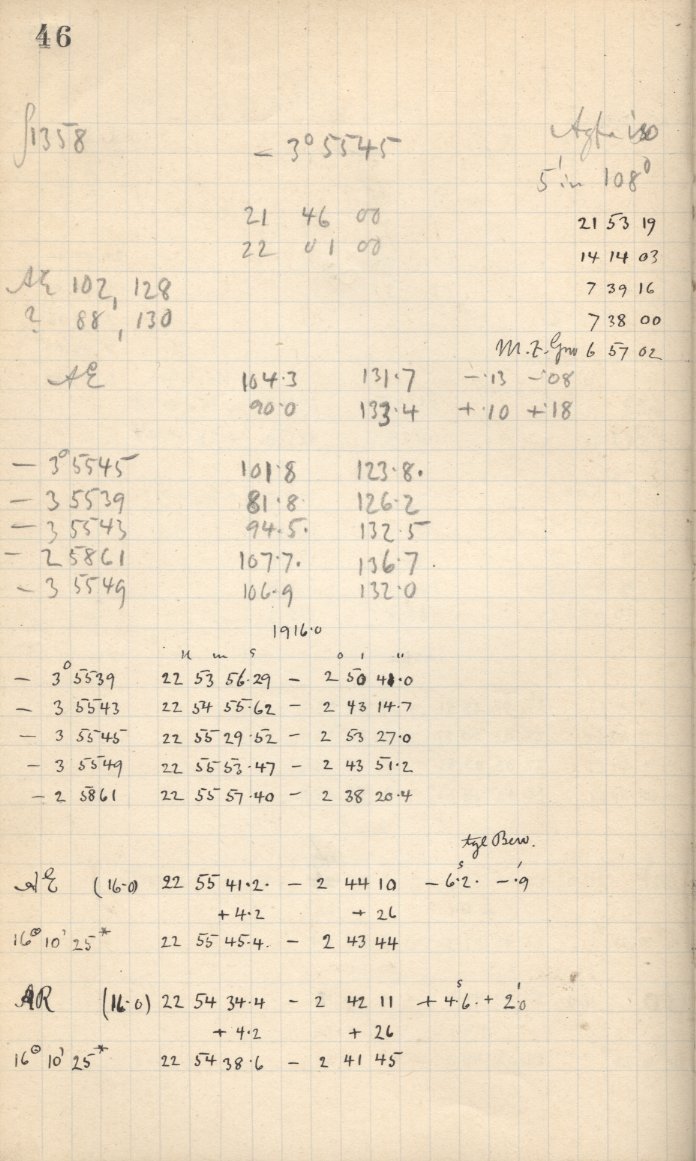 46
1358 - 3° 5545 Agfa iso
5' in 108°
21 46 00 21 53 19
22 01 00 14 14 03
AE 102, 128 7 39 16
? 88, 130 7 38 00
M.Z. Grw 6 57 02
AE 104.3 131.7 -.13 -.08
90.0 133.4 +.10 +.18
- 3° 5545 101.8 123.8.
- 3 5539 81.8 126.2
- 3 5543 94.5. 132.5
- 2 5861 107.7. 136.7
- 3 5549 106.9 132.0
1916.0
H m s ° ' "
- 3° 5539 22 53 56.29 - 2 50 41.0
- 3 5543 22 54 55.62 - 2 43 14.7
- 3 5545 22 55 29.52 - 2 53 27.0
- 3 5549 22 55 53.47 - 2 43 51.2
- 2 5861 22 55 57.40 - 2 38 20.4
tgl Bew.
AE (16.0) 22 55 41.2. - 2 44 10 - 6ˢ.2. - '.9
+ 4.2 + 26
16° 10' 25* 22 55 45.4. - 2 43 44
AR (16.0) 22 54 34.4 - 2 42 11 + 4ˢ.6. + 2'.0
+ 4.2 + 26
16° 10' 25* 22 54 38.6 - 2 41 45